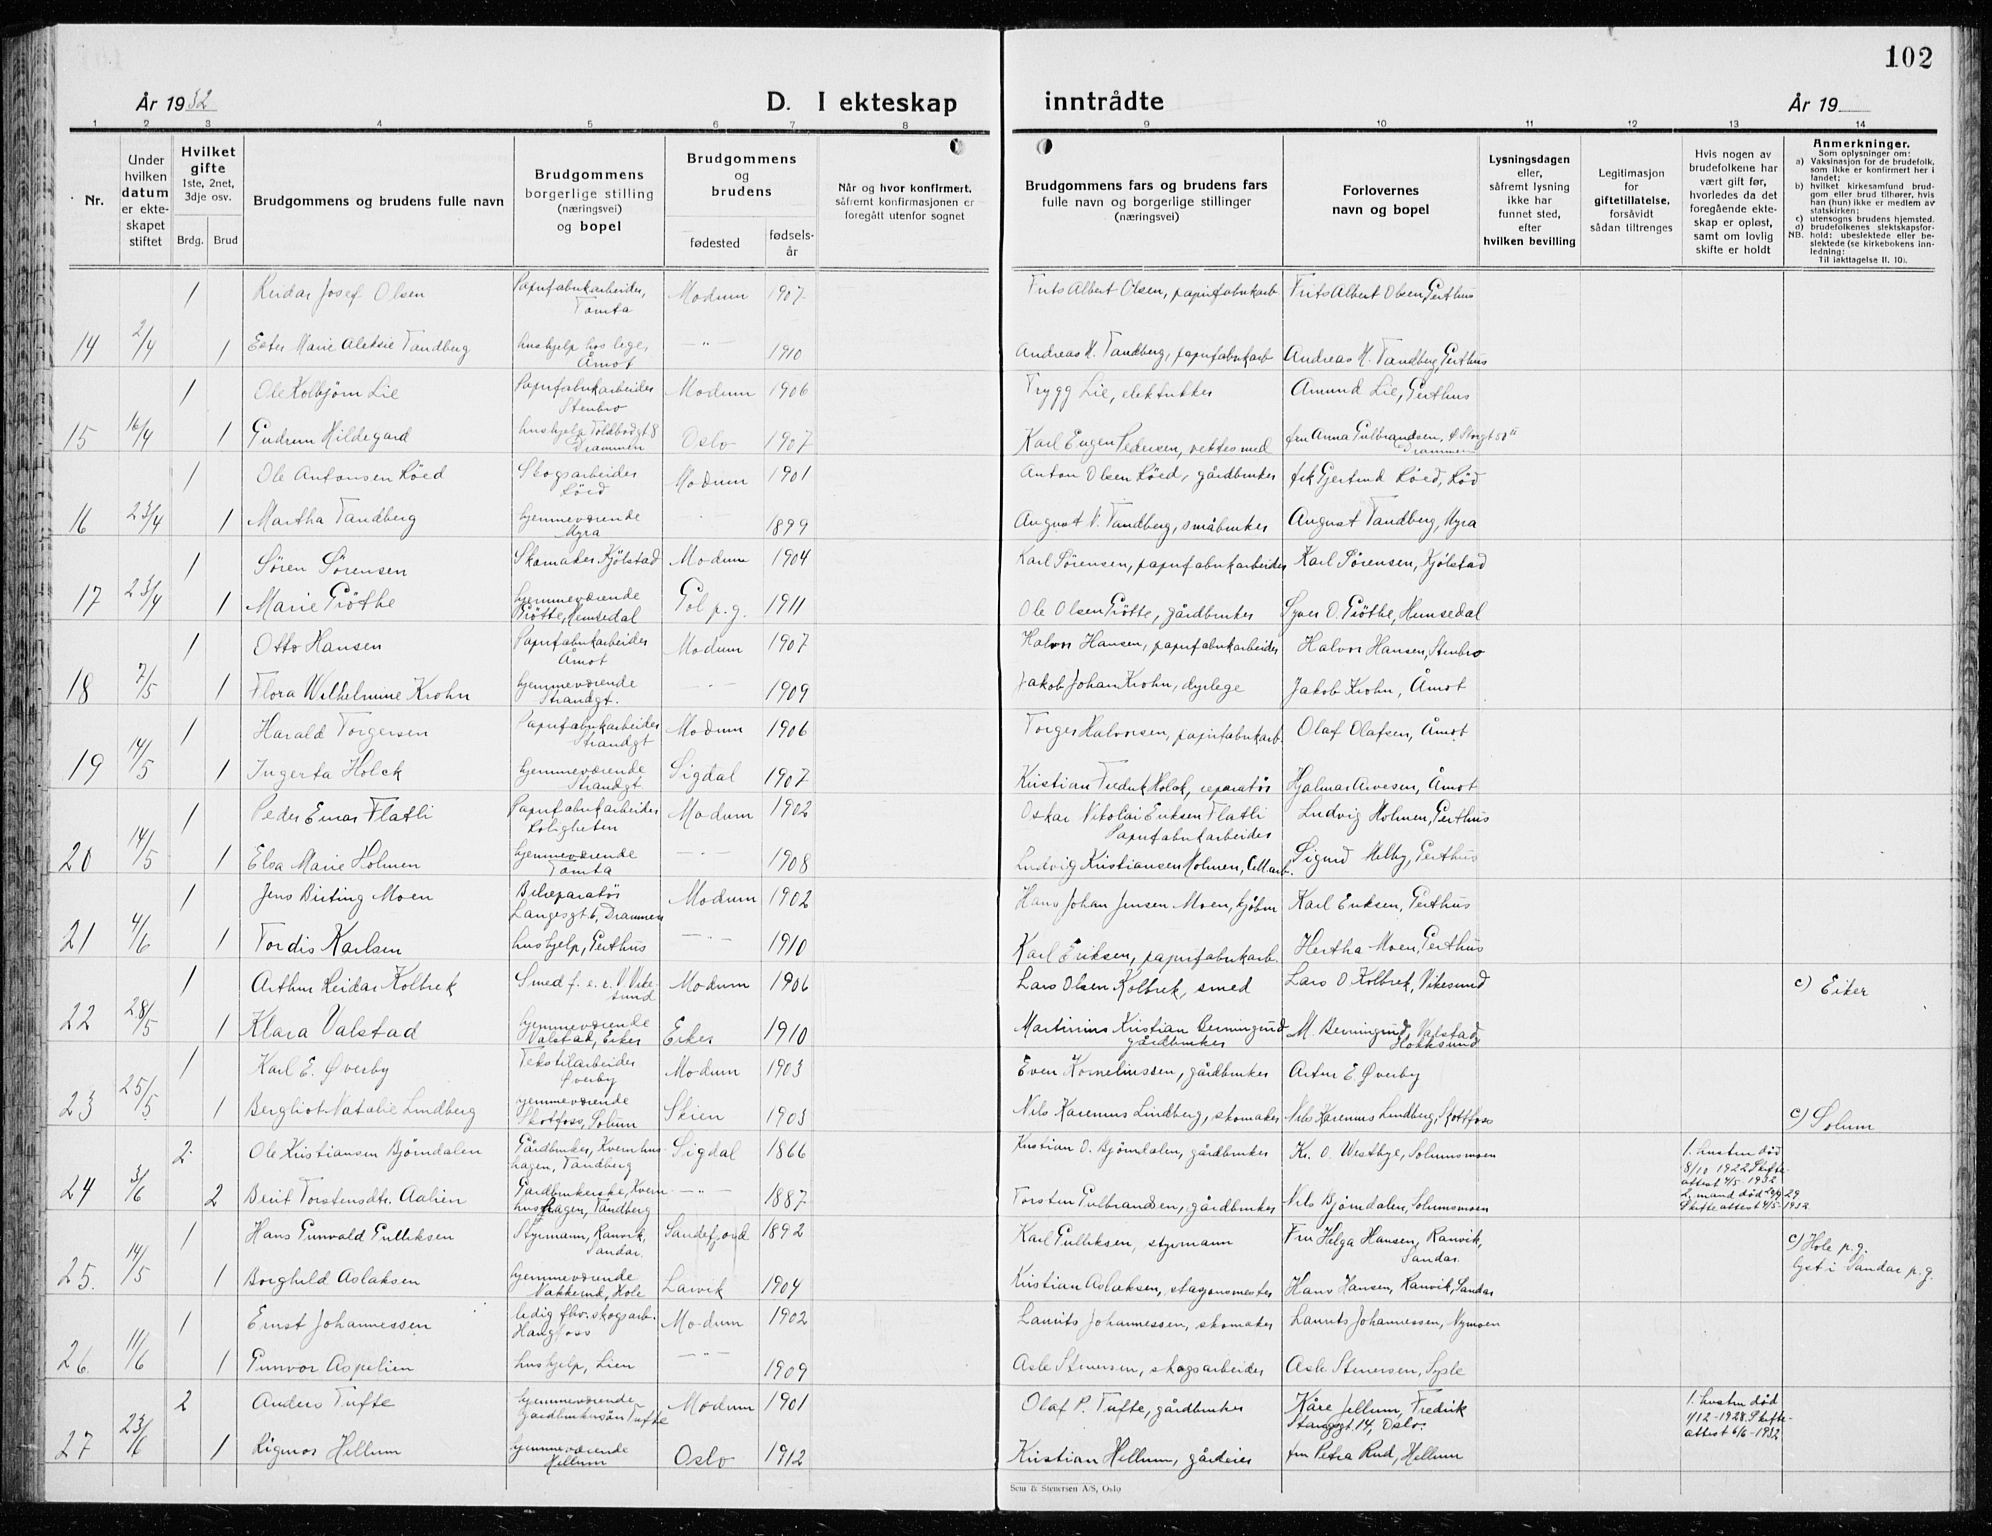 102
År 1932
D. I ekteskap inntrådte
År 19
1 2 3 4 5 6 7 8 9 10 11 12 13 14
Nr.
Under hvilken datum er ekteskapet stiftet
Hvilket gifte 1ste, 2net, 3dje osv.
Brdg. Brud
Brudgommens og brudens fulle navn
Brudgommens borgerlige stilling (næringsvei) og bopel
Brudgommens og brudens
fødested
fødselsår
Når og hvor konfirmert, såfremt konfirmasjonen er foregått utenfor sognet
Brudgommens fars og brudens fars fulle navn og borgerlige stillinger (næringsvei)
Forlovernes navn og bopel
Lysningsdagen eller, såfremt lysning ikke har funnet sted, efter hvilken bevilling
Legitimasjon for giftetillatelse, forsåvidt sådan tiltrenges
Hvis nogen av brudefolkene har vært gift før, hvorledes da det foregående ekteskap er opløst, samt om lovlig skifte er holdt
Anmerkninger.
Som oplysninger om:
a) Vaksinasjon for de brudefolk, som ikke er konfirmert her i landet;
b) hvilket kirkesamfund brudgom eller brud tilhører, hvis han (hun) ikke er medlem av statskirken;
c) utensogns brudens hjemsted.
d) brudefolkenes slektskapsforhold: ubeslektede eller beslektede (se kirkebokens innledning:
NB. Til iakttagelse II. 10).
1 Reidar Josef Olsen Papirfabrikarbeider, Tomta Modum 1907 Frits Albert Olsen, papirfabrikarb. Frits Albert Olsen, Gerthus
14 2/4 1 Ester Marie Aleksie Tandberg hushjelp hos lege, Åmot —"— 1910 Andreas M. Tandberg, papirfabrikarb Andreas M. Tandberg, Gerthus
1 Ole Kolbjørn Lie Papirfabrikarbeider Stenbro Modum 1906 Trygg Lie, elektriker Amund Lie, Gerthus
15 16/4 1 Gudrun Hildegard hushjelp Toldbodgt 8 Drammen Oslo 1907 Karl Eugen Pedersen, vektermed frn Anna Gulbrandsen, Ø Storgt 50 II Drammen
1 Ole Antonsen Röed Skogsarbeider Röed Modum 1901 Anton Olsen Röed, gårdbruker frk Gjertrud Röed, Röd
16 23/4 1 Martha Tandberg hjemmeværende Myra —"— 1899 August N. Tandberg, småbruker August Tandberg, Myra
1 Søren Sørensen Skomaker Kjølstad Modum 1904 Karl Sørensen, papirfabrikarbeider Karl Sørensen, Kjølstad
17 23/4 1 Marie Gröthe hjemmeværende Grötte, Hemsedal Gol p.g. 1911 Ole Olsen Grötte, gårdbruker Syver O. Gröthe, Hemsedal
1 Otto Hansen Papirfabrikarbeider Åmot Modum 1907 Halvor Hansen, papirfabrikarbeider Halvor Hansen, Stenbro
18 7/5 1 Flora Wilhelmine Krohn hjemmeværende Strandgt. —"— 1909 Jakob Johan Krohn, dyrlege Jakob Krohn, Åmot
1 Harald Torgersen Papirfabrikarbeider Strandgt Modum 1906 Torger Halvorsen, papirfabrikarb. Olaf Olafsen, Åmot
19 14/5 1 Ingerta Holck hjemmeværende Strandgt. Sigdal 1907 Kristian Fredrik Holck, reparatør Hjalmar Arvesen, Åmot
1 Peder Einar Flatli Papirfabrikarbeider Roligheten Modum 1902 Oskar Nikolai Eriksen Flatli Papirfabrikarbeider Ludvig Holmen, Gerthus
20 14/5 1 Elsa Marie Holmen hjemmeværende Tomta —"— 1908 Ludvig Kristiansen Holmen, Cell.arb. Sigurd Melby, Gerthus
1 Jens Birting Moen Bilreparatør Langesgt 6, Drammen Modum 1902 Hans Johan Jensen Moen, kjøbm Karl Eriksen, Gerthus
21 4/6 1 Tordis Karlsen hushjelp, Gerthus —"— 1910 Karl Eriksen, papirfabrikarb. Hertha Moen, Gerthus
1 Arthur Reidar Kolbrek Smed f. e. r. V. Vikesund Modum 1906 Lars Olsen Kolbrek, smed Lars O. Kolbrek, Vikesund c) Eiker
22 28/5 1 Klara Valstad hjemmeværende Valstad, Eiker Eiker 1910 Martinius Kristian Berningrud gårdbruker M Berningrud, Valstad, Hokksund
1 Karl E. Øverby Tekstilarbeider Øverby Modum 1903 Even Korneliussen, gårdbruker Artur E. Øverby
23 25/5 1 Bergliot Natalie Lindberg hjemmeværende Skotfoss, Solum Skien 1903 Nils Karenius Lindberg, skomaker Nils Karenius Lindberg, Skottfoss c) Solum
2 Ole Kristiansen Bjørndalen Gårdbruker, Kvernhushagen, Tandberg Sigdal 1866 Kristian O. Bjørndalen, gårdbruker Kr. O. Westbye, Solumsmoen 1. hustru død 8/10 1922 Skifteattest 4/5 1932
24 3/6 2 Birit Torstensdtr. Aalien Gardbrukerske, Kvernhushagen, Tandberg —"— 1887 Torsten Gulbrandsen, gårdbruker Nils Bjørndalen, Solumsmoen 2. mand død 29 Skifteattest 4/5-1932
1 Hans Gunvald Gulliksen Styrmann, Ranvik, Sandar. Sandefjord 1892 Karl Gulliksen, styrmann Fru Helga Hansen, Ranvik, Sandar. c) Hole p.g. lyst i Sandar p.g.
25. 14/5 1 Borghild Aslaksen hjemmeværende Nakkerud, Hole Larvik 1904 Kristian Aslaksen, stasjonsmester Hans Hansen, Ranvik, Sandar
1 Ernst Johannessen ledig fhv. skogsarb. Haugfoss Modum 1902 Laurits Johannessen, skomaker Laurits Johannessen, Nymoen
26. 11/6 1 Gunvor Aspelien hushjelp, Lien —"— 1909 Asle Stenersen, skogsarbeider Asle Stenersen, Sysle
2 Anders Tufte hjemmeværende Gårdbrukersøn Tufte Modum 1901 Olaf P. Tufte, gårdbruker Kåre Jellum, Fredrik Stangsgt 14, Oslo. 1. hustru død 4/12-1928. Skifteattest 6/6-1932
27 23/6 1 Rigmor Hellum hjemmeværende Hellum Oslo 1912 Kristian Hellum, gårdeier fru Petra Rud, Hellum
Sem & Stenersen A/S, Oslo